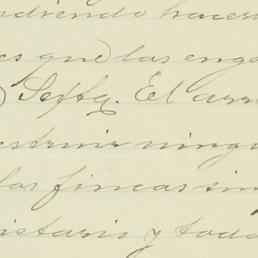 ndiendo hacer
es que las enga
) Septa. El arr
estruir ningu
las fincas sin
istario y toda